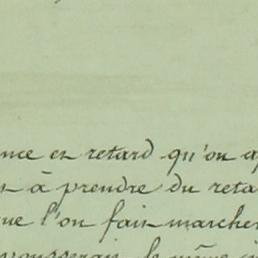 nce en retard qu'on a
à prendre du reta
ue l'on fais marcher
le même